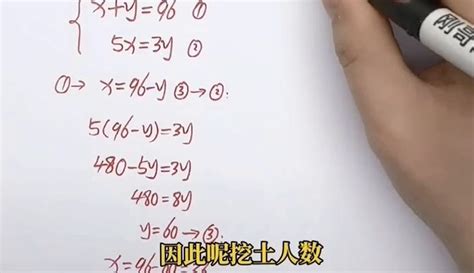 x+y=96 ①
5x=3y ②
①→ x=96-y ③→②:
5(96-y)=3y
480-5y=3y
480=8y
y=60→③:
因此呢挖土人数
x=96-60=36